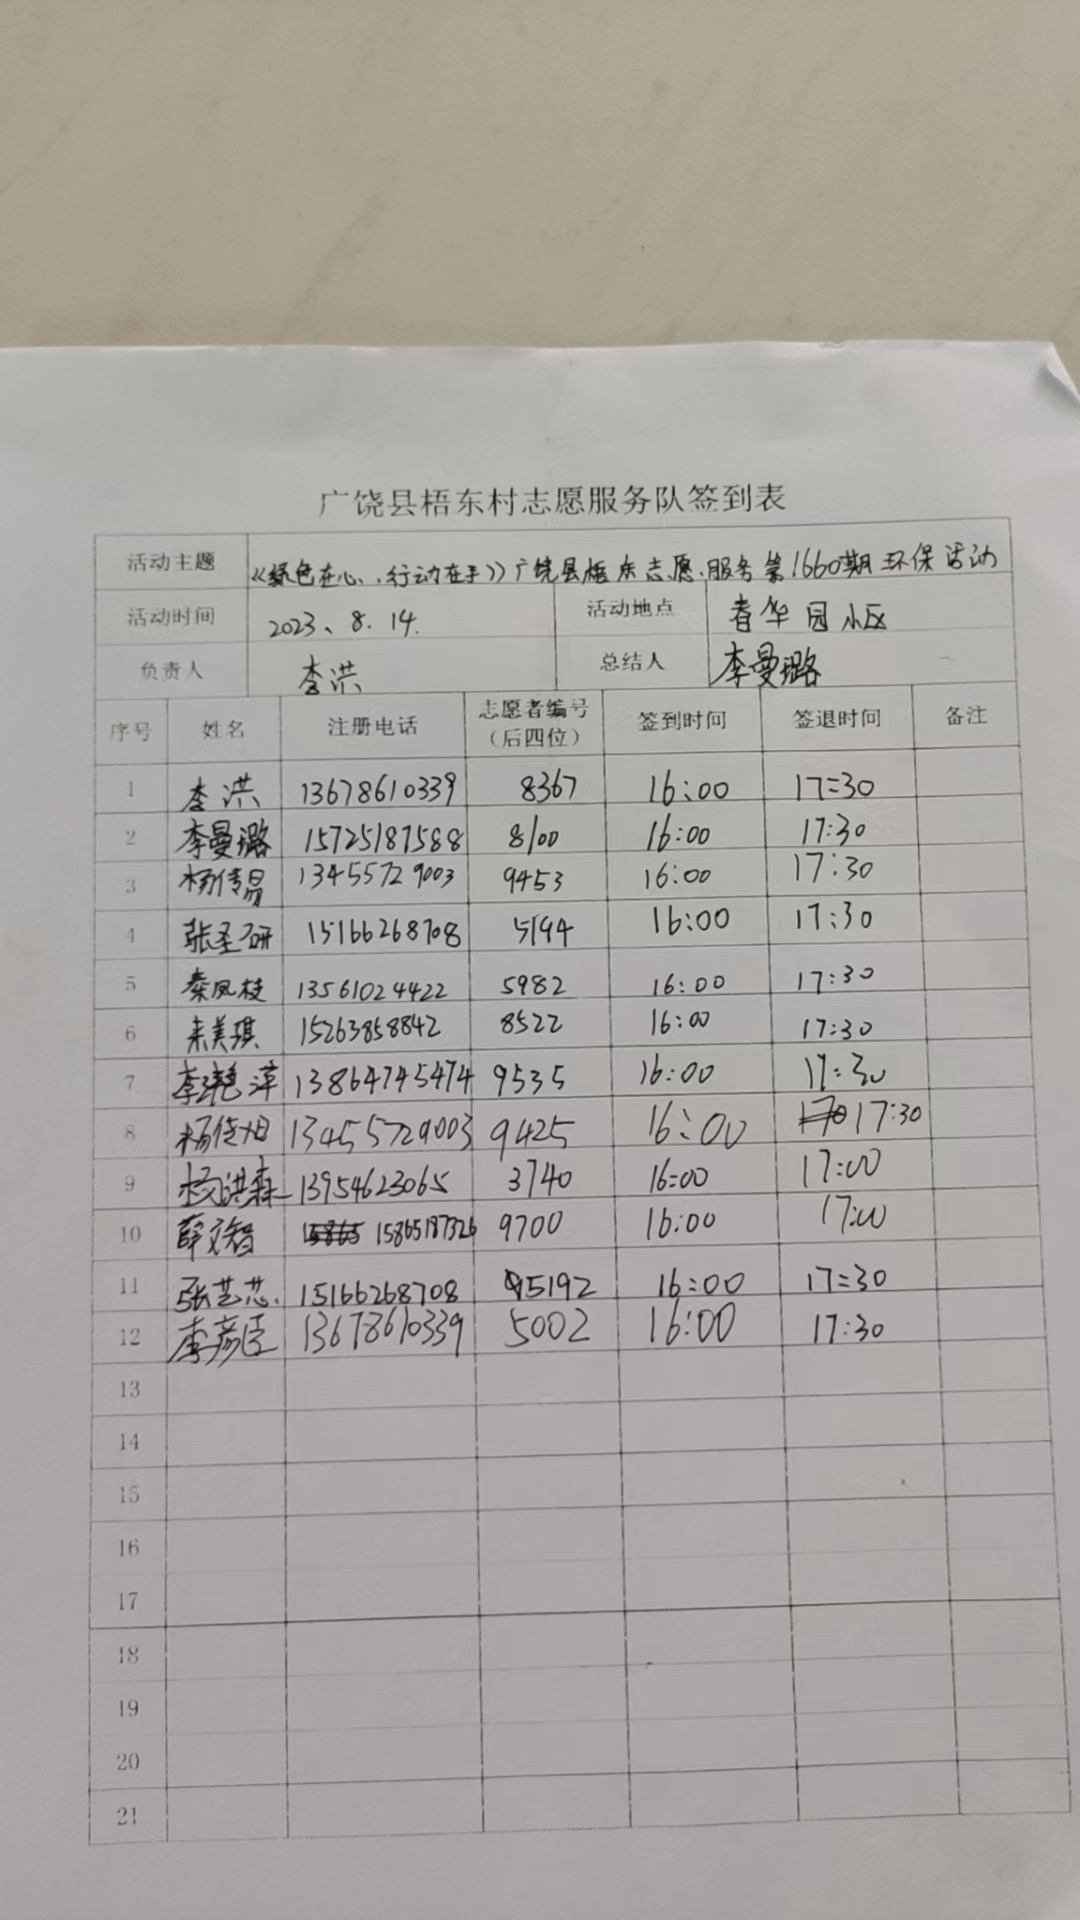 广饶县梧东村志愿服务队签到表
活动主题 《绿色在心、行动在手》广饶县梧东志愿服务第1660期环保活动
活动时间 2023、8.14. 活动地点 春华园小区
负责人 李洪 总结人 李曼璐
序号 姓名 注册电话 志愿者编号（后四位） 签到时间 签退时间 备注
1 李洪 13678610339 8367 16:00 17:30
2 李曼璐 15725187588 8100 16:00 17:30
3 杨传易 13455729003 9453 16:00 17:30
4 张圣研 15166268708 5194 16:00 17:30
5 秦凤枝 13561024422 5982 16:00 17:30
6 来美琪 15263858842 8522 16:00 17:30
7 李艳萍 13864745474 9535 16:00 17:30
8 杨传旭 13455729003 9425 16:00 17:30
9 杨洪森 13954623065 3740 16:00 17:00
10 薛文智 15865187326 9700 16:00 17:00
11 张艺芯 15166268708 5192 16:00 17:30
12 李彦臣 13678610339 5002 16:00 17:30
13
14
15
16
17
18
19
20
21